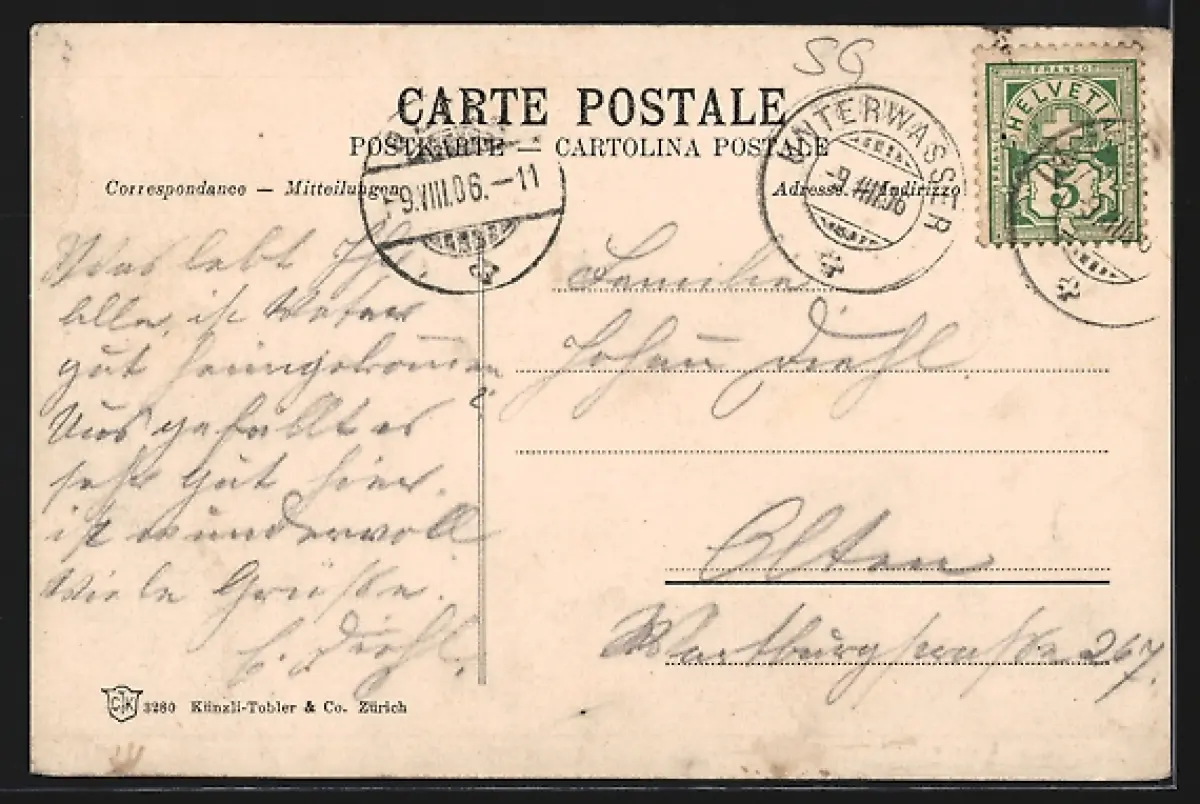 SG
CARTE POSTALE
POSTKARTE — CARTOLINA POSTALE
Correspondance — Mitteilungen
Adresse. — Indirizzo
-9.VIII.06.-11
UNTERWASSER
-9.VIII.06
FRANCO
HELVETIA
FRANCO
5
Was lebt Ihr
Alle, ist Vater
gut heimgekommen
?
Uns gefällt es
sehr gut hier.
ist wundervoll
Viele Grüsse.
E. Diehl.
Familie
Johann Diehl.
Olten
Wartburgstrasse 267.
CJK
3280 Künzli-Tobler & Co. Zürich